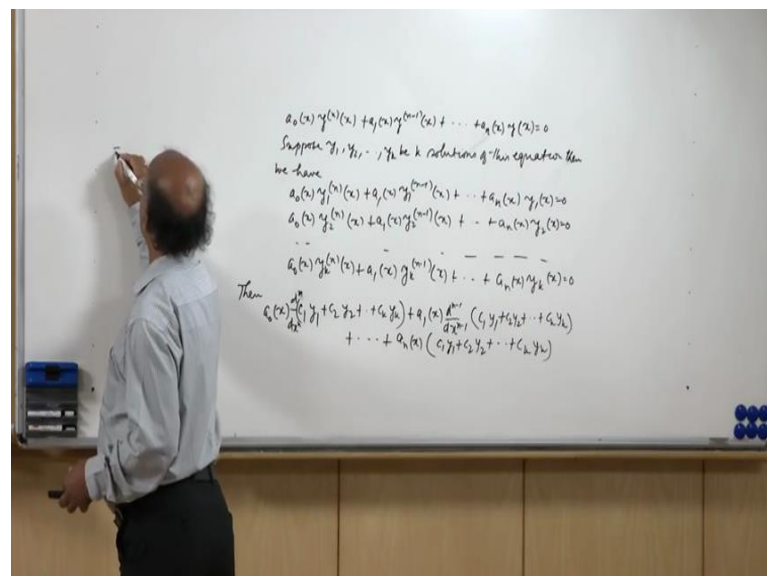 a₀(x) y⁽ⁿ⁾(x) + a₁(x) y⁽ⁿ⁻¹⁾(x) + ... + aₙ(x) y(x) = 0
Suppose y₁, y₂, .., yₖ be k solutions of this equation then
we have
a₀(x) y₁⁽ⁿ⁾(x) + a₁(x) y₁⁽ⁿ⁻¹⁾(x) + .. + aₙ(x) y₁(x) = 0
a₀(x) y₂⁽ⁿ⁾(x) + a₁(x) y₂⁽ⁿ⁻¹⁾(x) + .. + aₙ(x) y₂(x) = 0
-- - - - - - -
a₀(x) yₖ⁽ⁿ⁾(x) + a₁(x) yₖ⁽ⁿ⁻¹⁾(x) + ... + aₙ(x) yₖ(x) = 0
Then
a₀(x) dⁿ/dxⁿ (c₁y₁ + c₂y₂ + .. + cₖyₖ) + a₁(x) dⁿ⁻¹/dxⁿ⁻¹ (c₁y₁ + c₂y₂ + .. + cₖyₖ)
+ ... + aₙ(x) (c₁y₁ + c₂y₂ + ... + cₖyₖ)